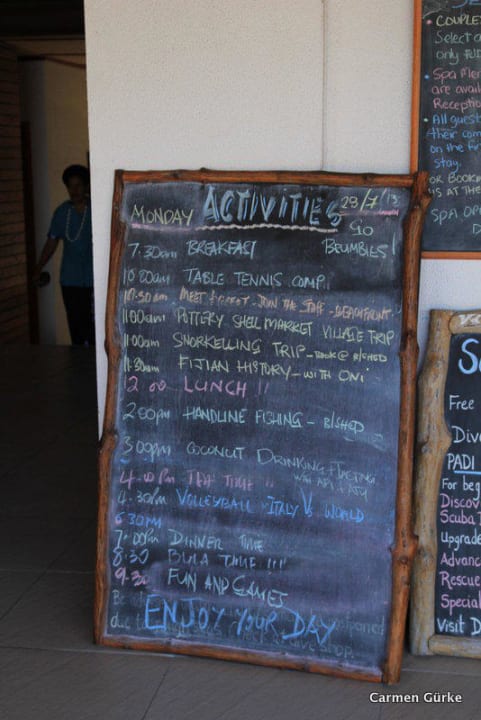 MONDAY ACTIVITIES 29/7/13
GO
7:30am BREAKFAST BRUMBIES!
10:00am TABLE TENNIS COMP
10:30am MEET & GREET - JOIN THE STAFF - BEACHFRONT
11:00am POTTERY SHELL MARKET VILLAGE TRIP
11:00am SNORKELLING TRIP - BOOK @ B/SHED
11:30am FIJIAN HISTORY - WITH ONI
12 00 LUNCH !!
2:00pm HANDLINE FISHING - B/SHED
3:00pm COCONUT DRINKING + TASTING
WITH API + ATU
4:00pm TEA TIME !!
4:30pm VOLLEYBALL - ITALY VS WORLD
6:30pm
7:00pm DINNER TIME
8:30 BULA TIME !!!
9:30 FUN AND GAMES
ENJOY YOUR DAY
COUPLES
Select a
only FJD
Spa Men
are avail
Reception
All guest
their com
on the fir
stay.
OR BOOKIN
US AT THE
SPA OPE
Free
Dive
PADI
For beg
Discov
Scuba D
Upgrade
Advanc
Rescue
Special
Visit D
Carmen Gürke